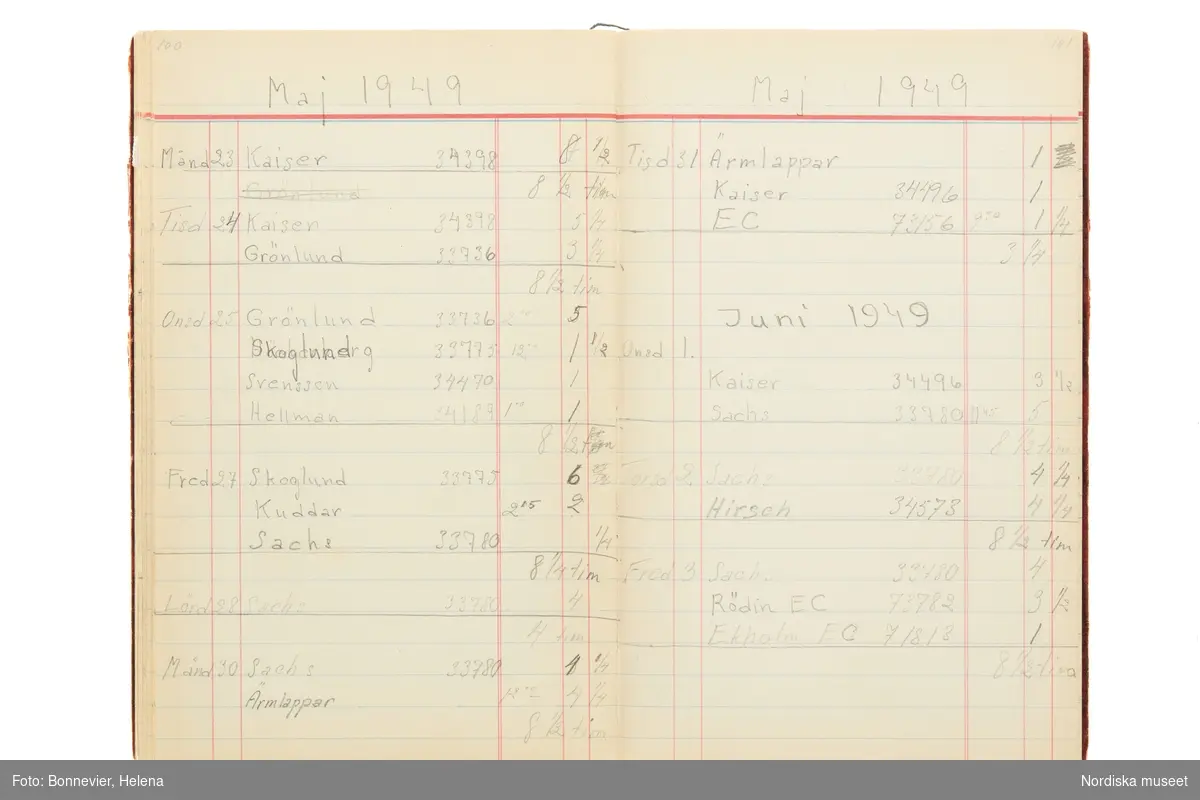 100
Maj 1949
Månd 23 Kaiser 34398 8 1/2
8 1/2 tim
Tisd 24 Kaiser 34398 5 1/4
Grönlund 33736 3 1/4
8 1/2 tim
Onsd 25 Grönlund 33736 5
33775 1 1/2
Svensson 34470 1
Hellman 1
8 1/2 tim
Fred 27 Skoglund 33775 6
Kuddar 2 15 2
Sachs 33780 1/4
8 1/4 tim
Lörd 28 Sachs 33780 4
4 tim
Månd 30 Sachs 33780 4 1/4
Ärmlappar 4 1/4
8 1/2 tim
101
Maj 1949
Tisd 31 Ärmlappar 1
Kaiser 34496 1
EC 73156 1 1/4
3 1/4
Juni 1949
Onsd 1.
Kaiser 34496 3 1/2
Sachs 33780 5
8 1/2 tim
Torsd 2 Sachs 33780 4 1/4
Hirsch 34573 4 1/4
8 1/2 tim
Fred 3 Sachs 33780 4
Rödin EC 73782 3 1/2
Ekholm EC 71818 1
8 1/2 tim
Foto: Bonnevier, Helena
Nordiska museet